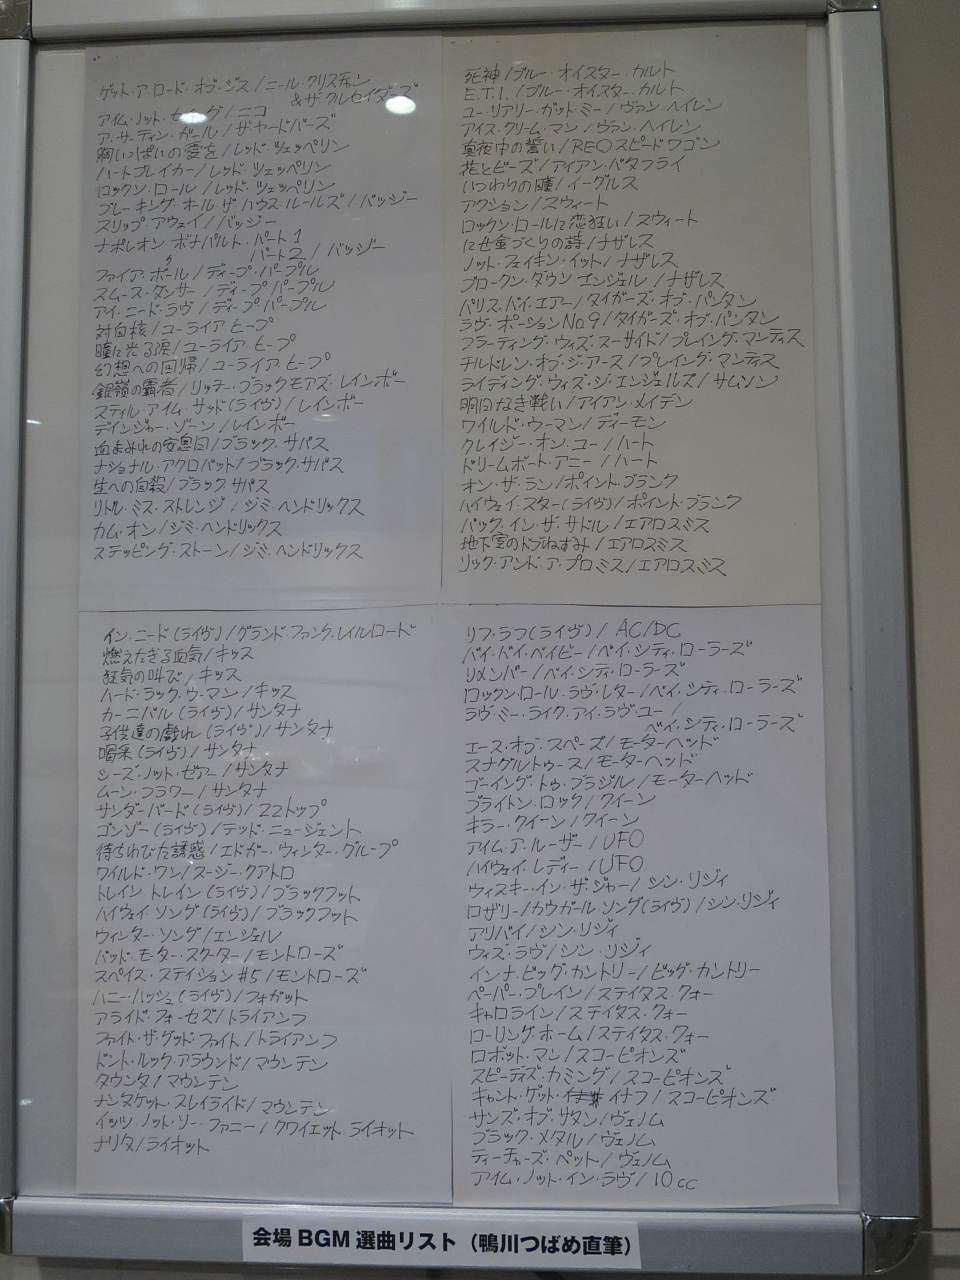 ゲット・ア・ロード・オブ・ジス/ニール・クリスチャン
&ザ・クルセイダーズ
アイム・ノット・セイング/ニコ
ア・サーティン・ガール/ザ・ヤードバーズ
胸いっぱいの愛を/レッド・ツェッペリン
ハートブレイカー/レッド・ツェッペリン
ロックン・ロール/レッド・ツェッペリン
ブレーキング・オール・ザ・ハウス・ルールズ/バッジー
スリップ・アウェイ/バッジー
ナポレオン・ボナパルト・パート1
〃 パート2/バッジー
ファイア・ボール/ディープ・パープル
スムース・ダンサー/ディープ・パープル
アイ・ニード・ラヴ/ディープ・パープル
対自核/ユーライア・ヒープ
瞳に光る涙/ユーライア・ヒープ
幻想への回帰/ユーライア・ヒープ
銀嶺の覇者/リッチー・ブラックモアズ・レインボー
スティル・アイム・サッド(ライヴ)/レインボー
デインジャー・ゾーン/レインボー
血まみれの安息日/ブラック・サバス
ナショナル・アクロバット/ブラック・サバス
生への自殺/ブラック・サバス
リトル・ミス・ストレンジ/ジミ・ヘンドリックス
カム・オン/ジミ・ヘンドリックス
ステッピング・ストーン/ジミ・ヘンドリックス
死神/ブルー・オイスター・カルト
E.T.I./ブルー・オイスター・カルト
ユー・リアリー・ガット・ミー/ヴァン・ヘイレン
アイス・クリーム・マン/ヴァン・ヘイレン
真夜中の誓い/REOスピードワゴン
花とビーズ/アイアン・バタフライ
いつわりの瞳/イーグルス
アクション/スウィート
ロックン・ロールに恋狂い/スウィート
にせ金づくりの詩/ナザレス
ノット・フェイキン・イット/ナザレス
ブロークン・ダウン・エンジェル/ナザレス
パリス・バイ・エアー/タイガーズ・オブ・パンタン
ラヴ・ポーションNo.9/タイガーズ・オブ・パンタン
フラーティング・ウィズ・スーサイド/プレイング・マンティス
チルドレン・オブ・ジ・アース/プレイング・マンティス
ライディング・ウィズ・ジ・エンジェルズ/サムソン
明日なき戦い/アイアン・メイデン
ワイルド・ウーマン/ディーモン
クレイジー・オン・ユー/ハート
ドリームボート・アニー/ハート
オン・ザ・ラン/ポイント・ブランク
ハイウェイ・スター(ライヴ)/ポイント・ブランク
バック・イン・ザ・サドル/エアロスミス
地下室のドブねずみ/エアロスミス
リック・アンド・ア・プロミス/エアロスミス
イン・ニード(ライヴ)/グランド・ファンク・レイルロード
燃えたぎる血気/キッス
狂気の叫び/キッス
ハード・ラック・ウーマン/キッス
カーニバル(ライヴ)/サンタナ
子供達の戯れ(ライヴ)/サンタナ
喝采(ライヴ)/サンタナ
シーズ・ノット・ゼアー/サンタナ
ムーン・フラワー/サンタナ
サンダーバード(ライヴ)/ZZトップ
ゴンゾー(ライヴ)/テッド・ニュージェント
待ちわびた誘惑/エドガー・ウィンター・グループ
ワイルド・ワン/スージー・クアトロ
トレイン・トレイン(ライヴ)/ブラックフット
ハイウェイ・ソング(ライヴ)/ブラックフット
ウィンター・ソング/エンジェル
バッド・モーター・スクーター/モントローズ
スペイス・ステイション#5/モントローズ
ハニー・ハッシュ(ライヴ)/フォガット
アライド・フォーセズ/トライアンフ
ファイト・ザ・グッド・ファイト/トライアンフ
ドント・ルック・アラウンド/マウンテン
タウンタ/マウンテン
ナンタケット・スレイライド/マウンテン
イッツ・ノット・ソー・ファニー/クワイエット・ライオット
ナリタ/ライオット
リフ・ラフ(ライヴ)/AC/DC
バイ・バイ・ベイビー/ベイ・シティ・ローラーズ
リメンバー/ベイ・シティ・ローラーズ
ロックン・ロール・ラヴ・レター/ベイ・シティ・ローラーズ
ラヴ・ミー・ライク・アイ・ラヴ・ユー/
ベイ・シティ・ローラーズ
エース・オブ・スペーズ/モーターヘッド
スナグルトゥース/モーターヘッド
ゴーイング・トゥ・ブラジル/モーターヘッド
ブライトン・ロック/クイーン
キラー・クイーン/クイーン
アイム・ア・ルーザー/UFO
ハイウェイ・レディー/UFO
ウィスキー・イン・ザ・ジャー/シン・リジィ
ロザリー/カウガール・ソング(ライヴ)/シン・リジィ
アリバイ/シン・リジィ
ウィズ・ラヴ/シン・リジィ
インナ・ビッグ・カントリー/ビッグ・カントリー
ペーパー・プレイン/ステイタス・クォー
キャロライン/ステイタス・クォー
ローリング・ホーム/ステイタス・クォー
ロボット・マン/スコーピオンズ
スピーディズ・カミング/スコーピオンズ
キャント・ゲット・イナフ/スコーピオンズ
サンズ・オブ・サタン/ヴェノム
ブラック・メタル/ヴェノム
ティーチャーズ・ペット/ヴェノム
アイム・ノット・イン・ラヴ/10cc
会場BGM選曲リスト(鴨川つばめ直筆)